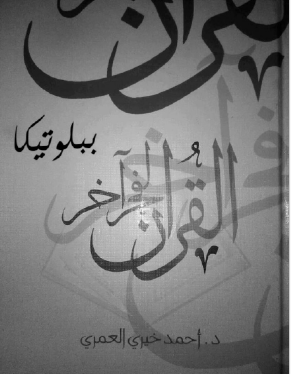 القرآن
ببلوتيكا
القرآن
لفجر آخر
د. أحمد خيري العمري